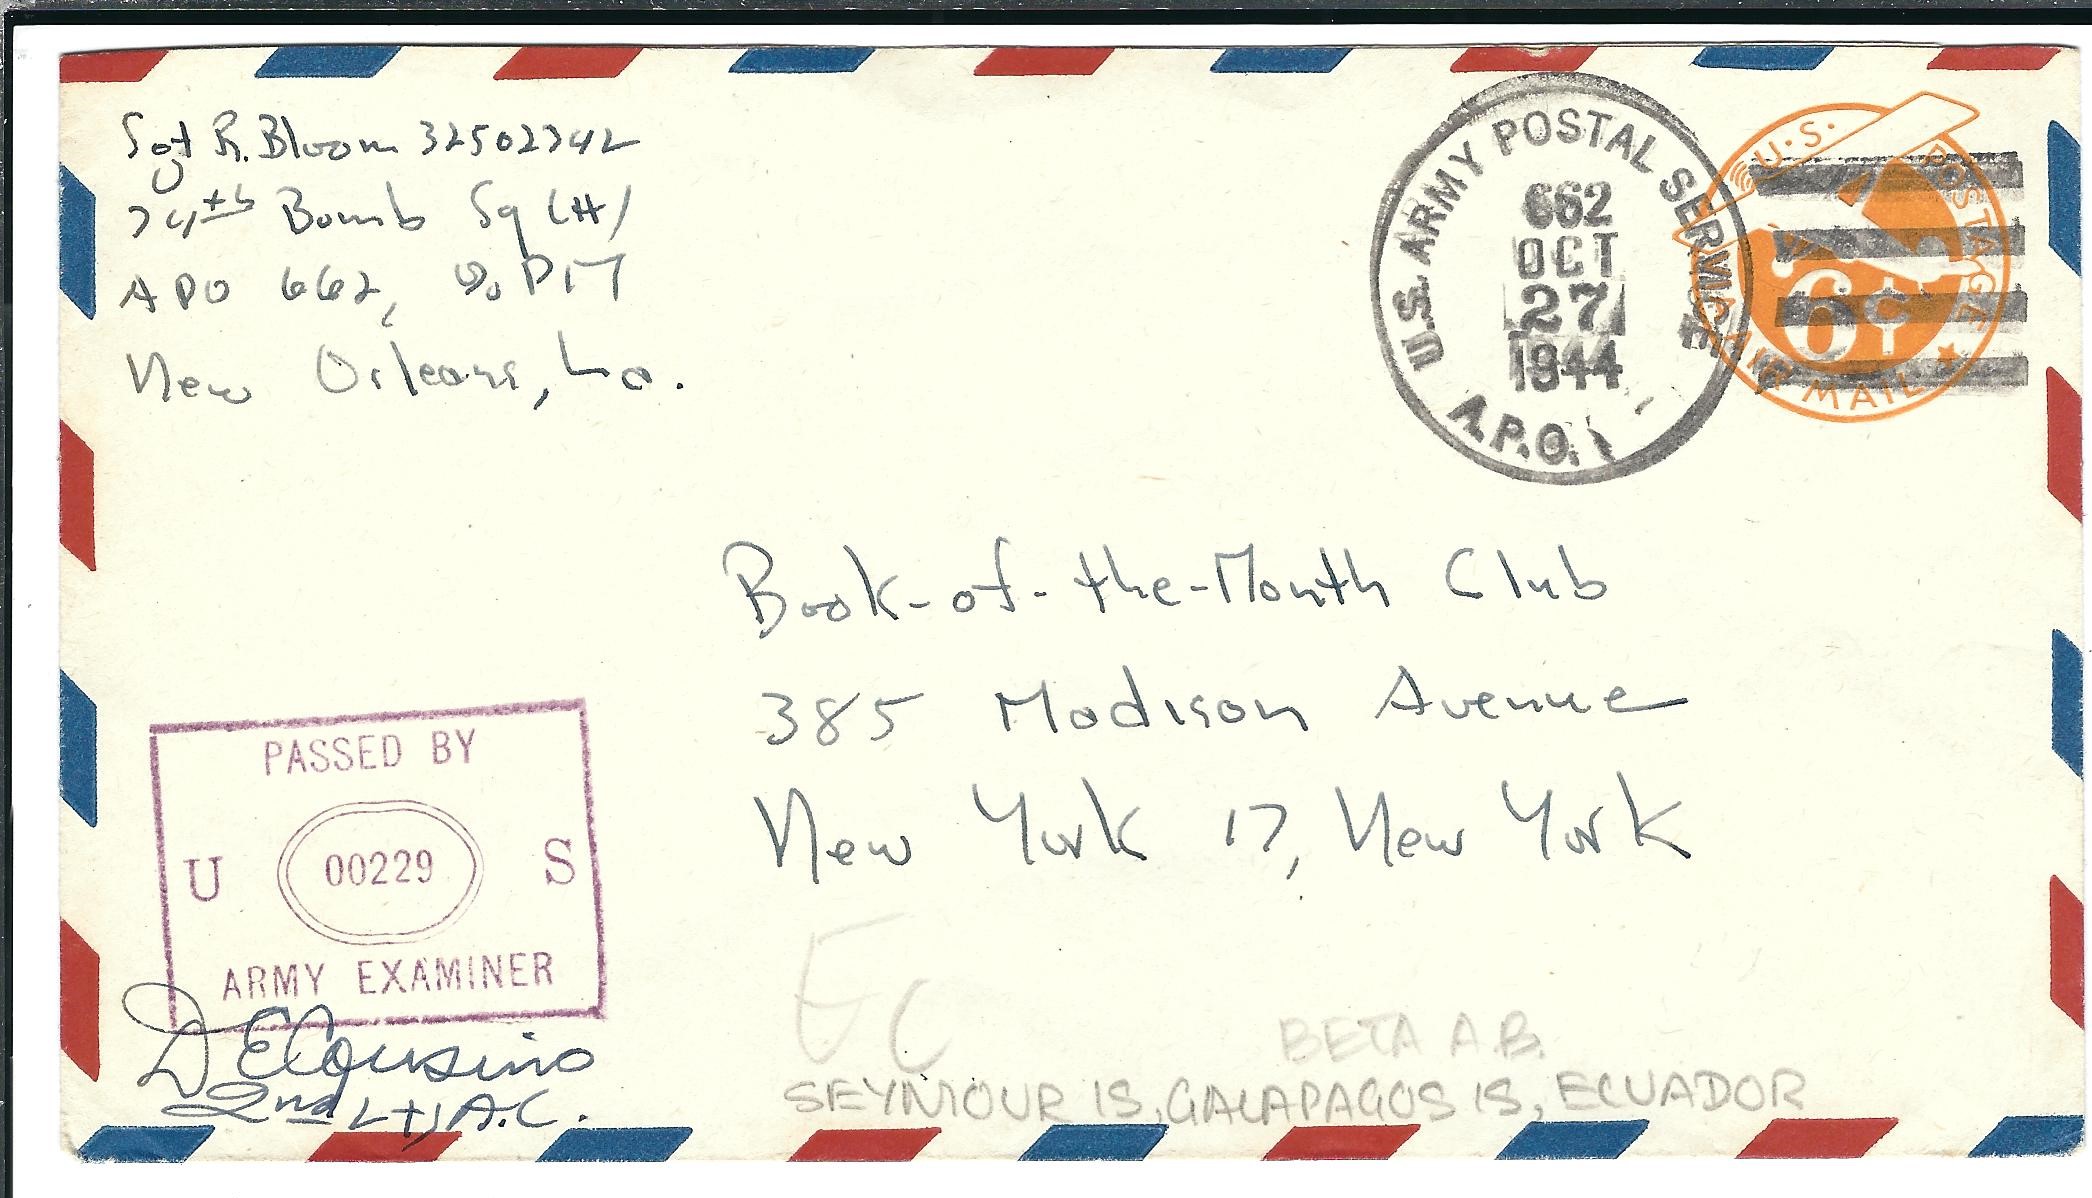 Sgt R. Bloom 32502342
74th Bomb Sq (H)
APO 662, % PM
New Orleans, La.
U.S. ARMY POSTAL SERVICE
662
OCT
27
1944
A.P.O.
U.S. POSTAGE
6¢
AIR MAIL
Book-of-the-Month Club
385 Madison Avenue
New York 17, New York
PASSED BY
U 00229 S
ARMY EXAMINER
D E Cousino
2nd Lt, A.C.
EC
BETA A.B.
SEYMOUR IS, GALAPAGOS IS, ECUADOR